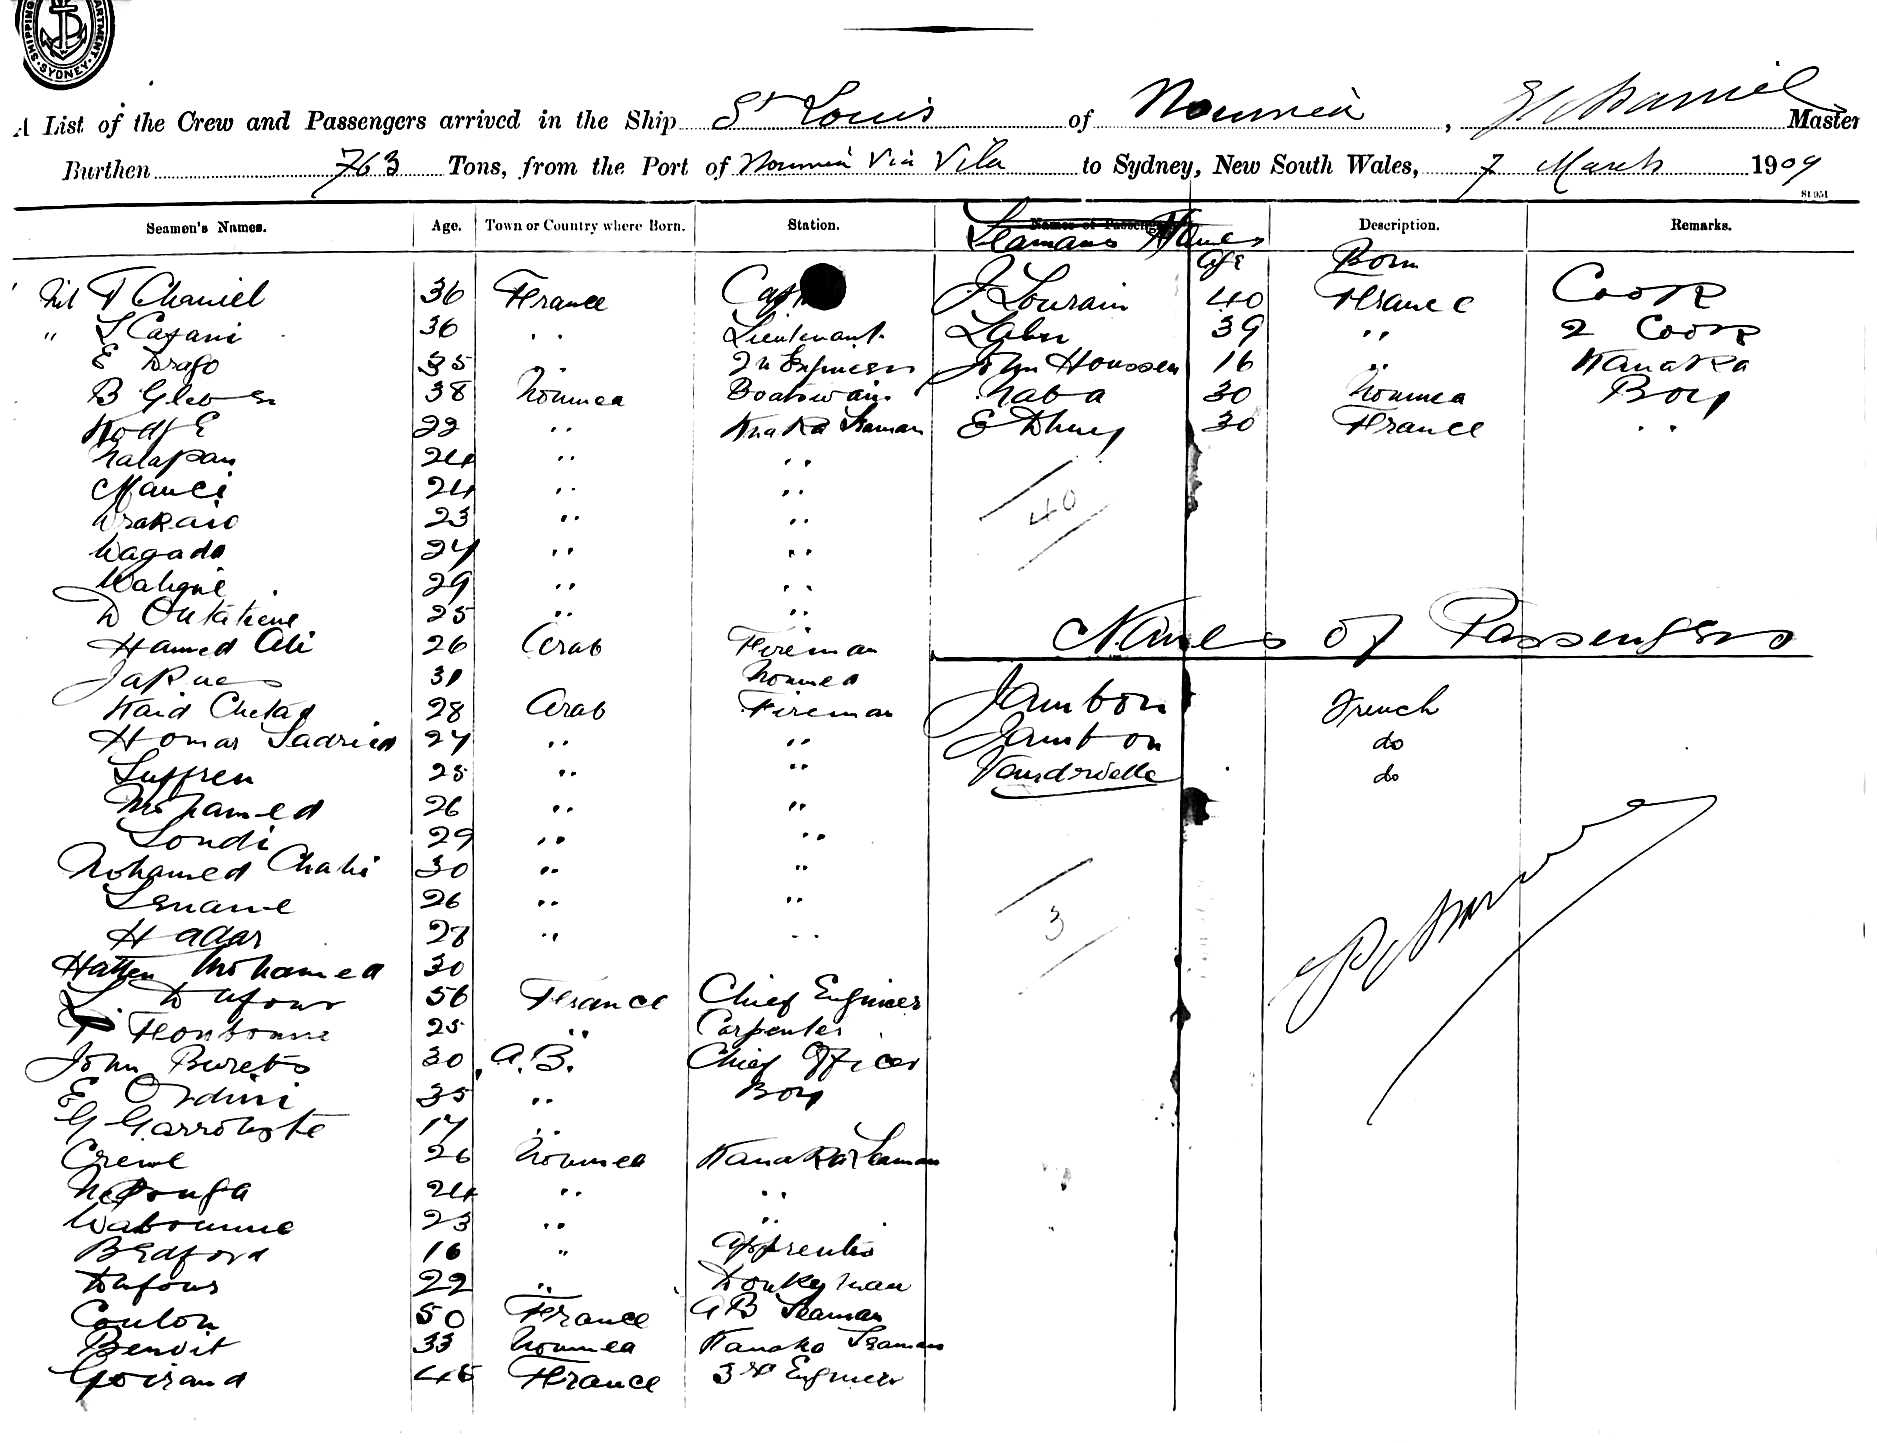 SHIPPING DEPARTMENT SYDNEY
A List of the Crew and Passengers arrived in the Ship St Louis of Noumea, Master
Burthen 763 Tons, from the Port of Noumea Via Vila to Sydney, New South Wales, 7 March 1909
81 951
Seamen's Names. Age. Town or Country where Born. Station. Names of Passengers Seamans Names Description. Remarks.
Age Born
T Chaniel 36 France Capt J Lourain 40 France Cook
L Casani 36 " Lieutenant 39 " 2 Cook
E Drago 35 " 2n Engineer John Houssen 16 " Kanaka
B 38 Noumea Boatswain Naba 30 Noumea Boy
22 " Seaman E Dhuy 30 France "
Nalapan 24 " "
Mauci 24 " " 40
Drakaio 23 " "
Wagado 24 " "
29 " "
D 25 " "
Hamed Ali 26 Arab Fireman Names of Passengers
Jakues 31 Noumea
Kaid Chetad 28 Arab Fireman Jambon French
Homar Sadried 27 " " Jambon do
Suffren 25 " " do
Mohamed 26 " "
Londi 29 " "
Mohamed Chahi 30 " "
26 " "
Hadar 28 " " 3
Hatten Mohamed 30
L. Dufour 56 France Chief Engineer
25 " Carpenter
John Burets 30 A.B. Chief Officer
E Ordini 35 " Boy
G 17 "
Creme 26 Noumea Kanaka Seaman
24 " "
Waboumne 23 " "
Bedford 16 " Apprentis
Dufour 22 " Donkeyman
Coulon 50 France AB Seaman
Benoit 33 Noumea Kanaka Seaman
Goirand 45 France 3rd Engineer